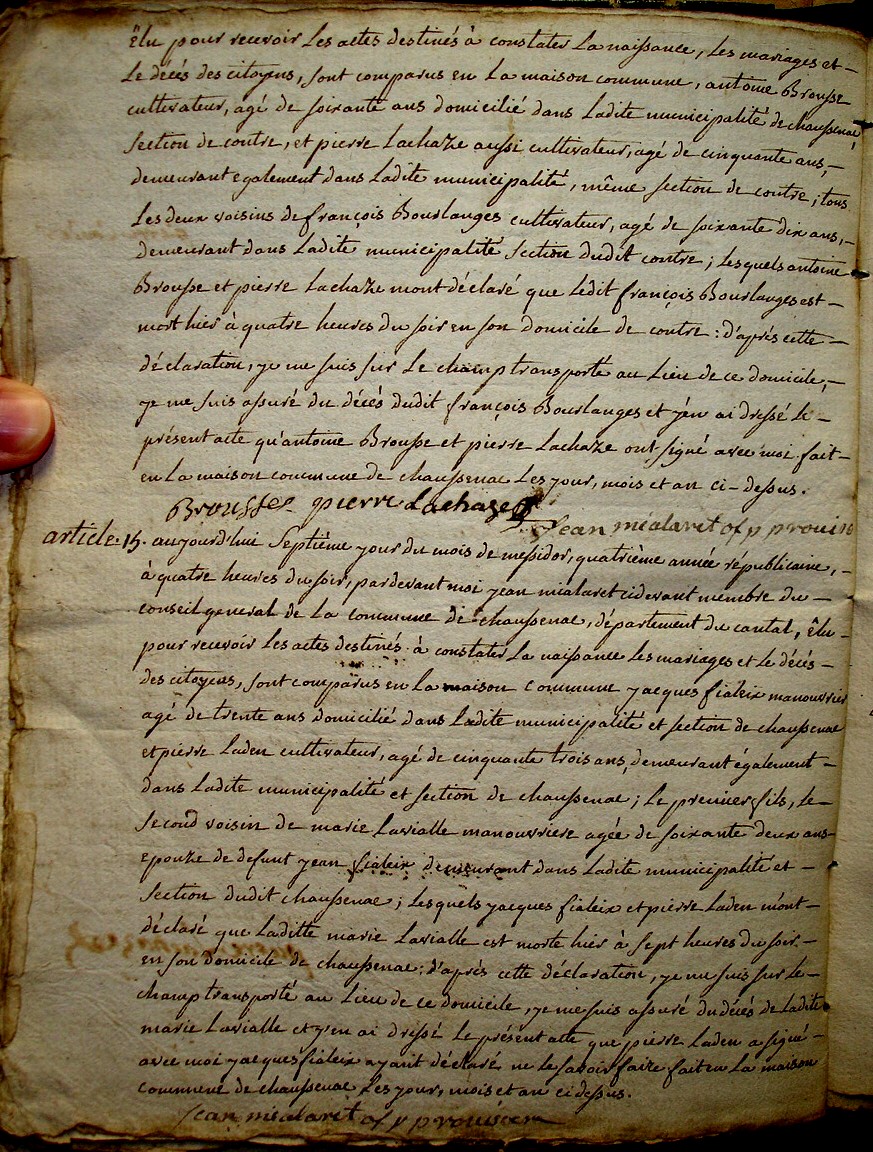 Élu pour recevoir les actes destinés à constater la naissance, les mariages et –
le décés des citoyens, sont comparus en la maison commune, antoine Brousse
cultivateur, agé de soixante ans domicilié dans ladite municipalité de chaussenac
section de contre, et pierre Lachaze aussi cultivateur, agé de cinquante ans, –
demeurant egalement dans ladite municipalité, même section de contre; tous
les deux voisins de françois Bourlanges cultivateur, agé de soixante dix ans, –
demeurant dans ladite municipalité section dudit contre; lesquels antoine
Brousse et pierre Lachaze mont déclaré que ledit françois Bourlanges est –
mort hier à quatre heures du soir en son domicile de contre: d'après cette –
déclaration, je me suis sur le champ transporté au lieu de ce domicile, –
je me suis assuré du décés dudit françois Bourlanges et j'en ai dressé le –
présent acte qu'antoine Brousse et pierre Lachaze ont signé avec moi fait –
en la maison commune de chaussenac les jour, mois et an ci-dessus.
Brousse pierre Lachaze
Jean mialaret of p prouiso
article. 15. aujourd'hui septième jour du mois de messidor, quatrième année républicaine, –
à quatre heures du soir, pardevant moi jean mialaret cidevant membre du –
conseil general de la commune de chaussenac, département du cantal, élu –
pour recevoir les actes destinés à constater la naissance les mariages et le décés –
des citoyens, sont comparus en la maison commune jacques fialeix manouvrier
agé de trente ans domicilié dans ladite municipalité et section de chaussenac
et pierre Laden cultivateur, agé de cinquante trois ans, demeurant également –
dans ladite municipalité et section de chaussenac; le premier fils, le –
second voisin de marie Lavialle manouvriere agée de soixante deux ans
epouze de defunt jean fialeix demeurant dans ladite municipalité et –
section dudit chaussenac; lesquels jacques fialeix et pierre Laden m'ont –
déclaré que laditte marie Lavialle est morte hier à sept heures du soir –
en son domicile de chaussenac: d'après cette déclaration, je me suis sur le –
champ transporté au lieu de ce domicile, je me suis assuré du décés de ladite
marie Lavialle et j'en ai dressé le présent acte que pierre Laden a signé –
avec moi jacques fialeix ayant déclaré ne le savoir faire fait en la maison
commune de chaussenac les jour, mois et an ci dessus.
Jean mialaret of p prouisoire